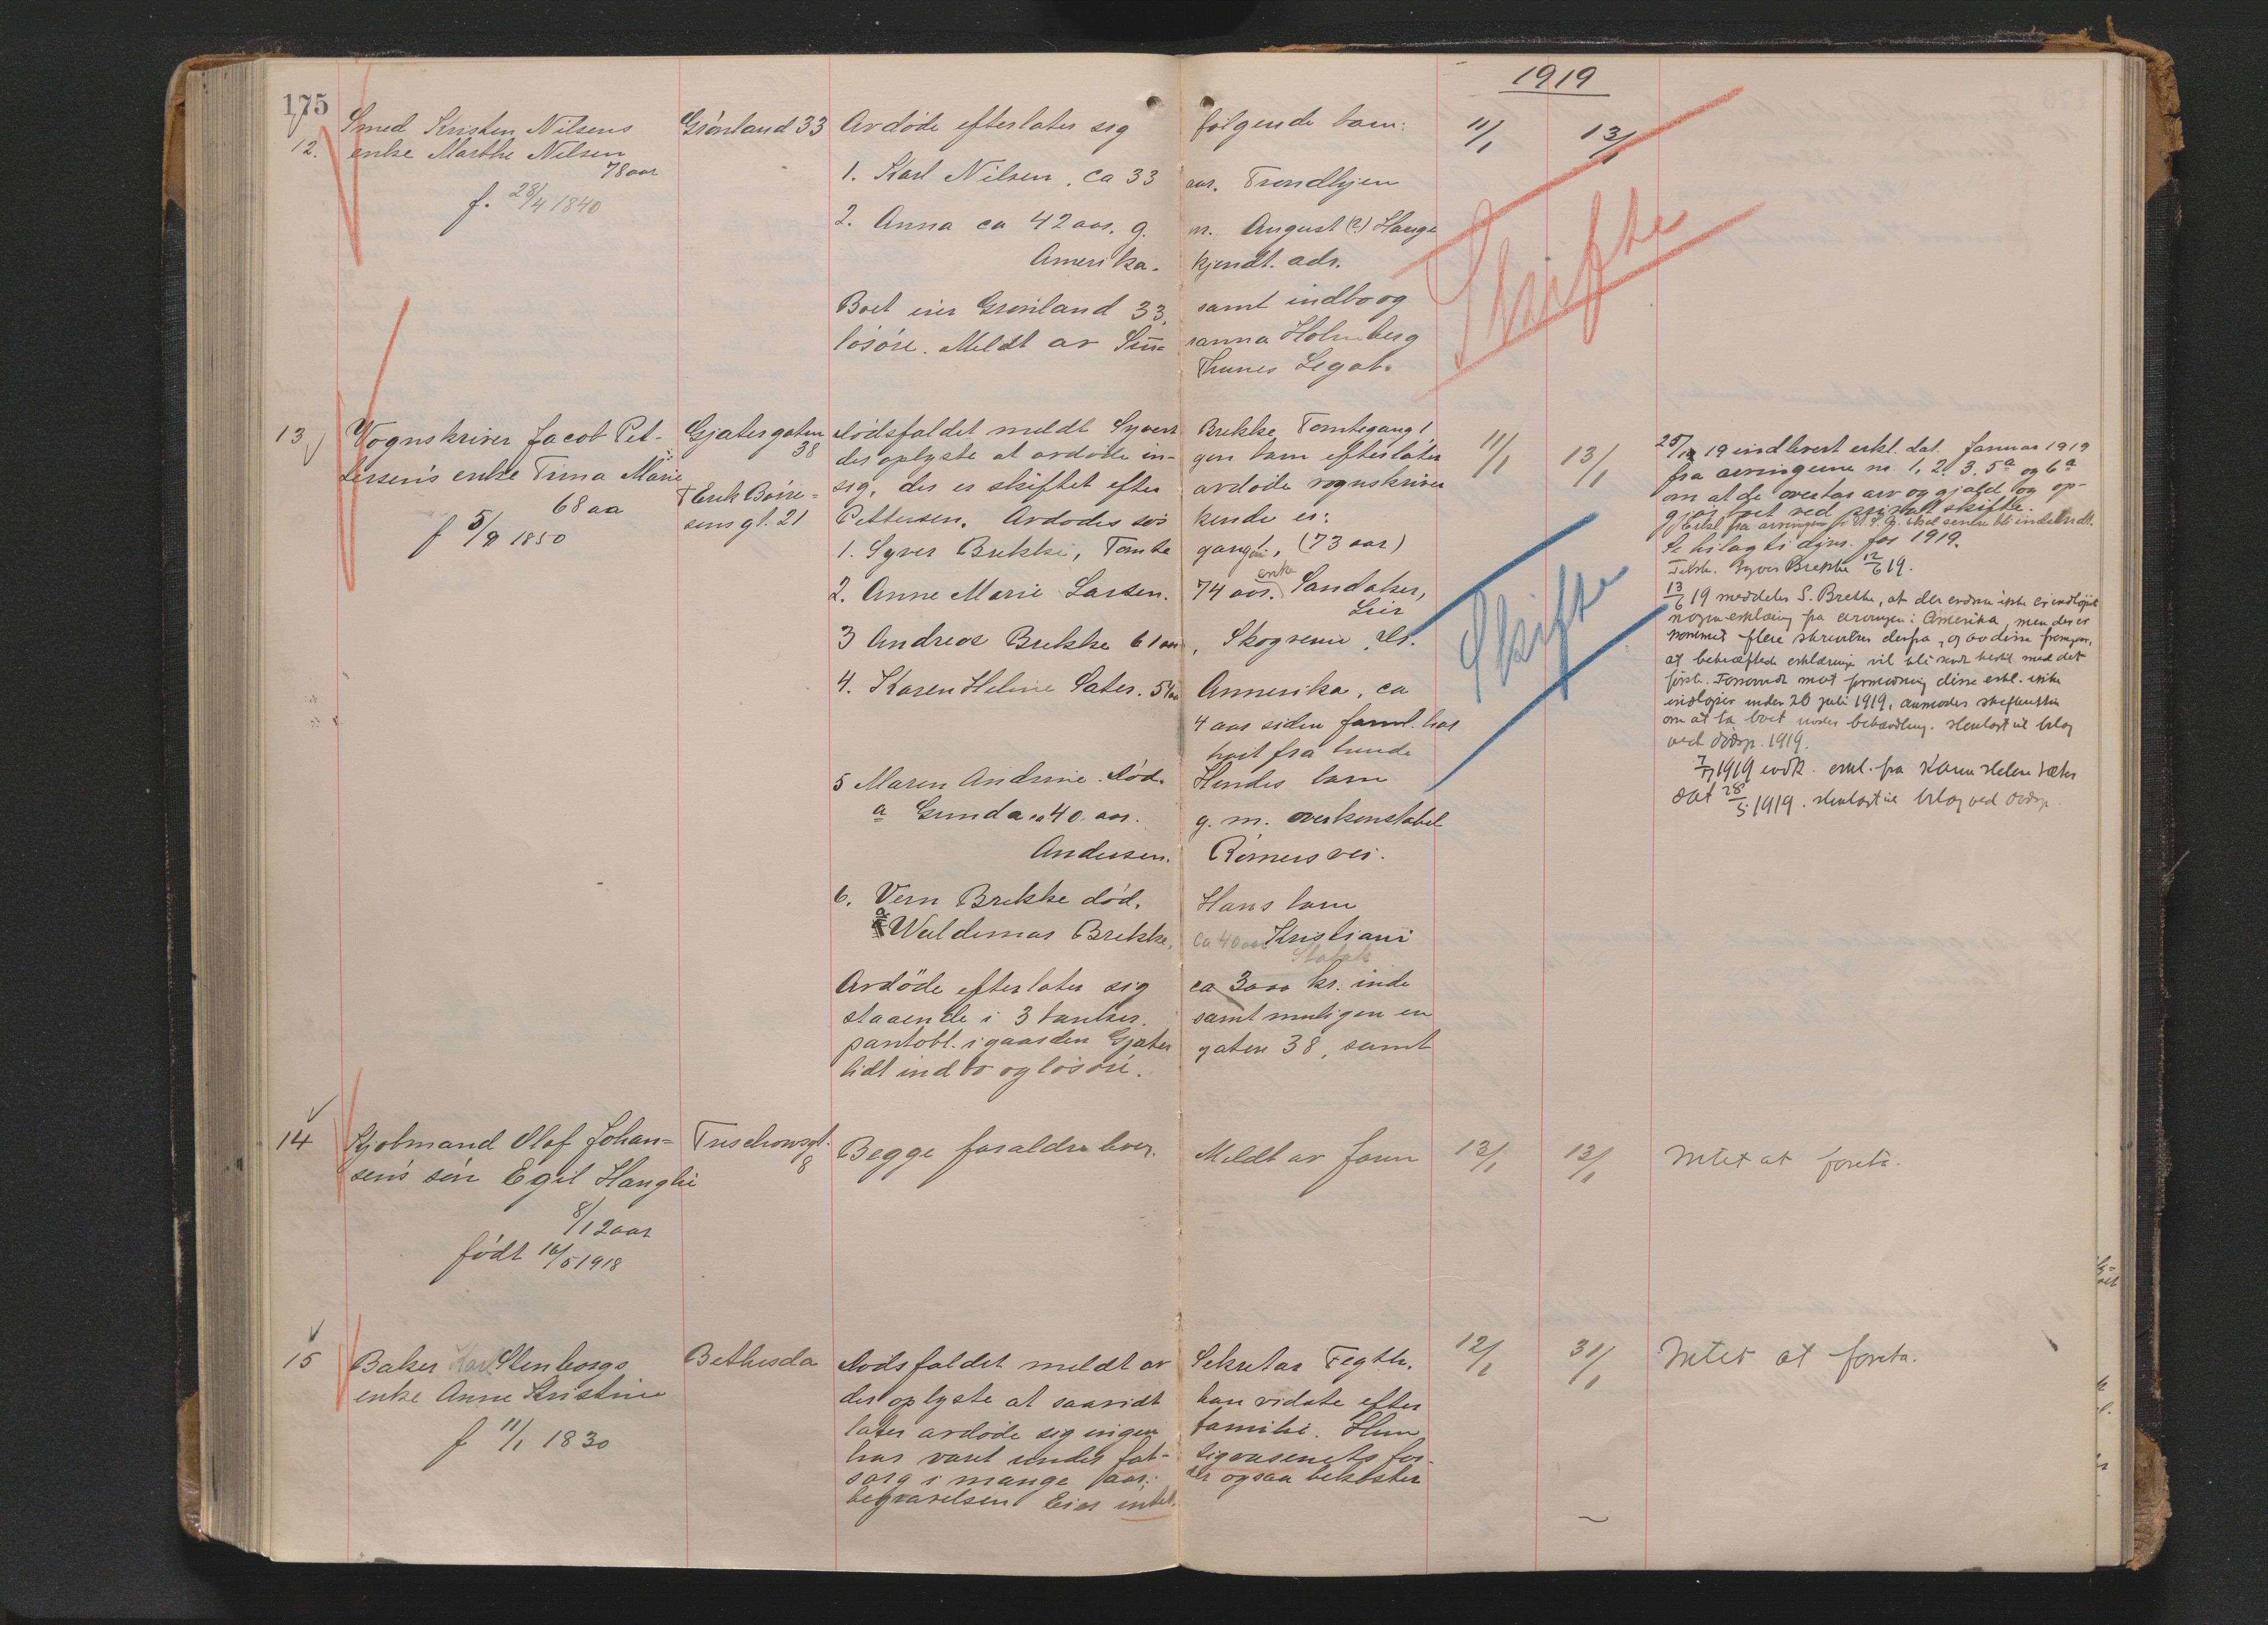 175
1919
12.
Smed Kristen Nilsens
enke Marthe Nilsen
78 aar
f. 28/4 1840
Grönland 33
Avdöde efterlater sig følgende barn:
1. Karl Nilsen, ca 33 aar. Trondhjem
2. Anna ca 42 aar. g. m. August (?) Hauge
Amerika. kjendt. adr.
Boet eier Grønland 33, samt indbo og
løsøre. Meldt av Su= sanna Holmberg
Thunes Legat.
11/1
13/1
Skifte
13
Vognskriver Jacob Pet-
tersens enke Trina Marie
68 aa
f 5/9 1850
Gjætergaten
38
† Erik Börre=
sens gt. 21
Dödsfaldet meldt Syvert Brekke Tomtegang 1
der oplyste at avdöde in- gen barn efterlater
sig, der er skiftet efter avdöde vognskriver
Pettersen. Avdödes søs kende er:
1. Syver Brekke, Tomte gangt 1, (73 aar)
2. Anne Marie Larsen. 74 aar. enke Sandaker,
Lier
3 Andreas Brekke 61 aar, Skogveien, Dr.
4. Karen Helene Sater. 54 aa Amerika, ca
4 aar siden faml. har
hört fra hende
5 Maren Andrine. Död. Hendes barn
a Gunda ca 40 aar. g. m. overkonstabel
Andersen. Römers vei.
6. Vern Brekke död. Hans barn
a Waldemar Brekke, ca 40 aar Kristiani
Avdöde efterlater sig ca 3000 kr. inde
staaende i 3 banker. samt muligen en
pantobl. i gaarden Gjæter gaten 38, samt
lidt indbo og løsöre.
11/1
13/1
Skifte
25/1 19 indlevert erkl. dat. Januar 1919
fra arvingerne nr. 1, 2, 3, 5a og 6a
om at de overtar arv og gjæld og op-
gjør boet ved privat skifte.
Se bilag til djrn. for 1919.
Syver Brekke 12/6 19.
13/6 19 meddeler S. Brekke, at der endnu ikke er indløpet
nogen erklæring fra arvingen i Amerika, men der er
kommet flere skrivelser derfra, og av disse fremgaar,
at bekræftede erklæringer vil bli sendt hertil med det
første. Forsaavidt mot formodning disse erkl. ikke
indløper inden 20 juli 1919, anmodes skifteretten
om at ta boet under behandling. Henlagt til bilag
ved dødsp. 1919.
7/7 1919 indk. erkl. fra Karen Helene Sæter
dat 28/5 1919. Henlagt til bilag ved dødsp.
14
Kjøbmand Olaf Johan=
sens sön Egil Hauglie
8/12 aar
født 16/5 1918
Treschowsgt.
8
Begge forældre lever. Meldt av faren
13/1
13/1
Intet at foreta.
15
Baker Karl Stenborgs
enke Anne Kristine
f 11/1 1830
Bethesda
Dödsfaldet meldt av Sekretær Fegth.
der oplyste at saavidt han vidste efter
later avdöde sig ingen familie. Hun
har været under fat- tigvæsenets for-
sorg i mange aar; der ogsaa bekoster
begravelsen Eier intet.
12/1
31/1
Intet at foreta.